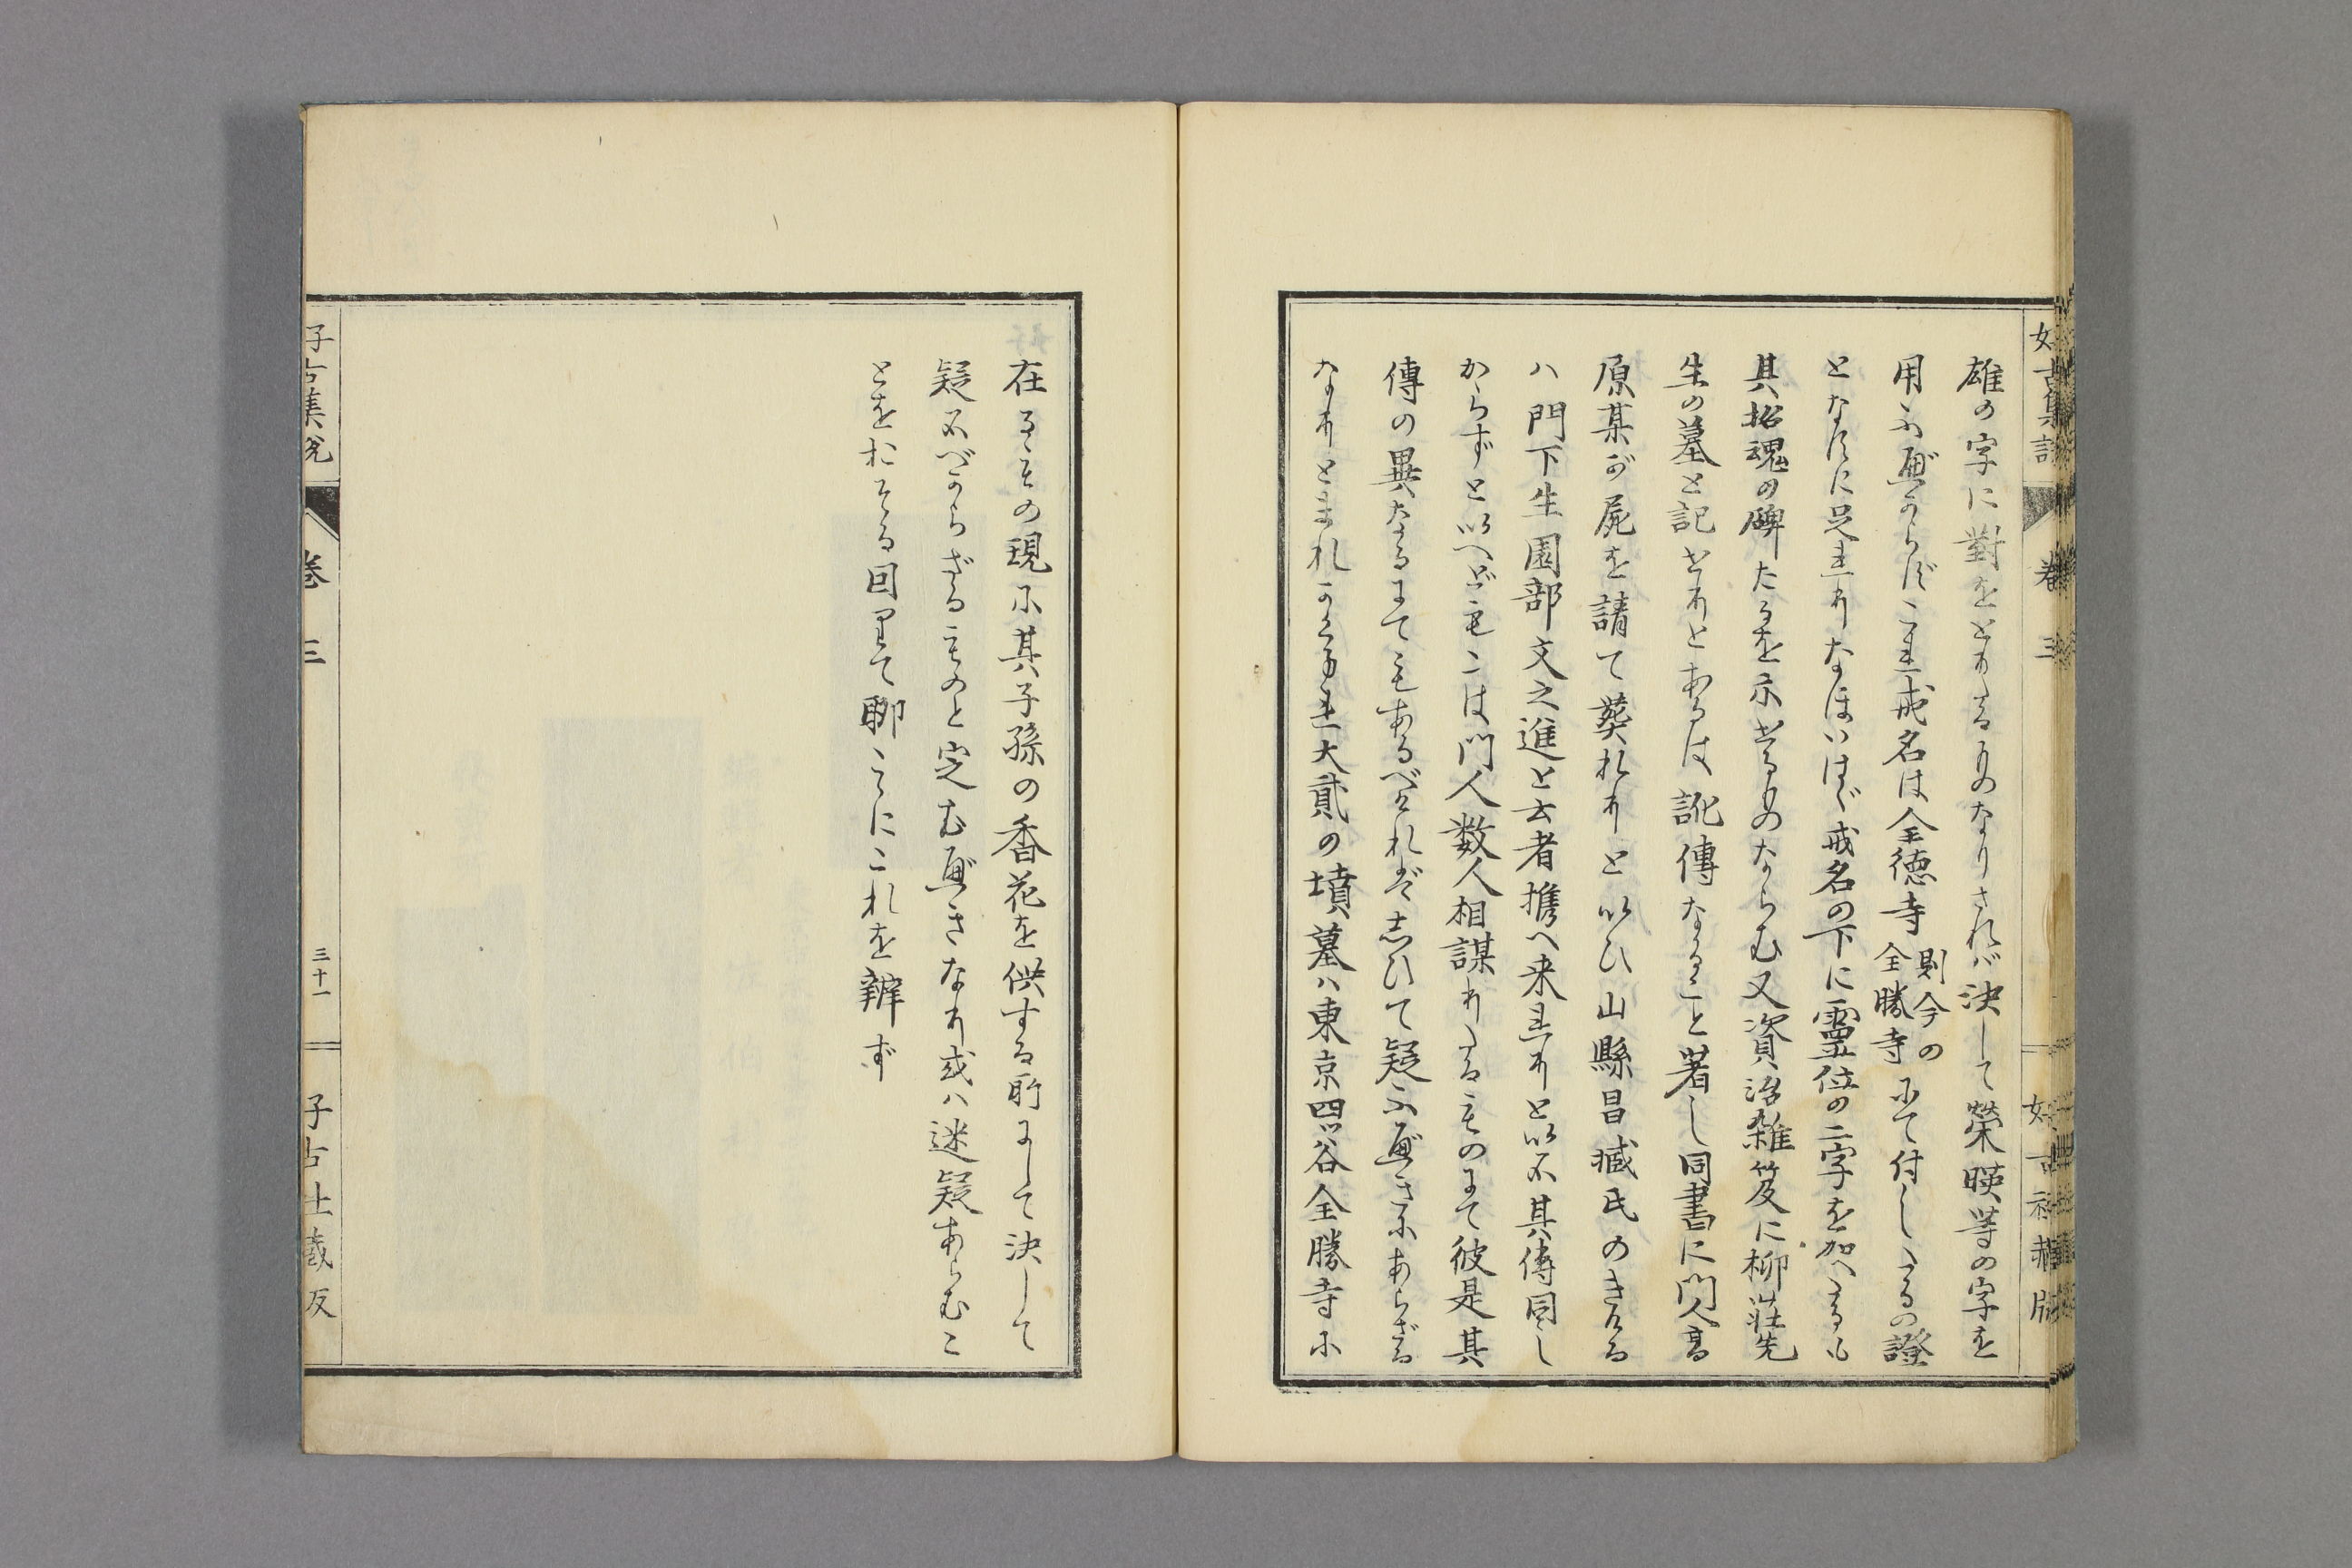 好古集説　巻三　好古社藏版
雄の字に對をとりたるものなりされバ決して榮暎等の字を
用ふ可からずこれ戒名は全徳寺則今の全勝寺にて付したるの證
となすに足れりなほいはゞ戒名の下に靈位の二字を加へたるも
其招魂の碑たるを示せるものならむ又資治雑笈に柳荘先
生の墓と記せりとあるは訛傳なること著し同書に門人髙
原某が屍を請て葬れりと以ひ山縣昌臧氏のきける
ハ門下生園部文之進と云者携へ来れりと以ふ其傳同し
からずと以へども こは門人数人相謀りたるものにて彼是其
傳の異なるにてもあるべけれど志ひて疑ふ可きにあらざる
なりとまれかくまれ大貳の墳墓ハ東京四ツ谷全勝寺に
在るその現に其子孫の香花を供する所にして決して
疑ふべからざるものと定む可きなり或ハ迷疑あらむこ
とをおそる因りて聊こゝにこれを辨ず
好古集説　巻三　三十一　好古社藏版